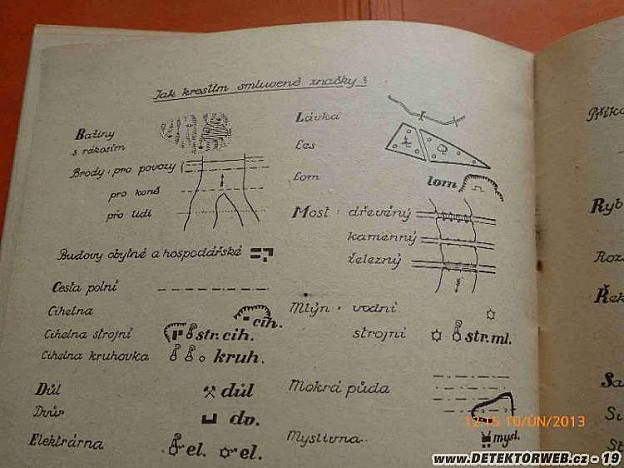 Jak kreslím smluvené značky?
Bažiny
s rákosím
Brody: pro povozy
pro koně
pro lidi
Budovy obytné a hospodářské
Cesta polní
Cihelna cih.
Cihelna strojní str. cih.
Cihelna kruhovka kruh.
Důl důl
Dvůr dv.
Elektrárna el. el.
Lávka
Les
Lom lom
Most: dřevěný
kamenný
železný
Mlýn: vodní
strojní str. ml.
Mokrá půda
Myslivna mysl.
Ryb
Roz
Řek
Sa
12:15 10/ÚN/2013
www.DETEKTORWEB.cz - 19